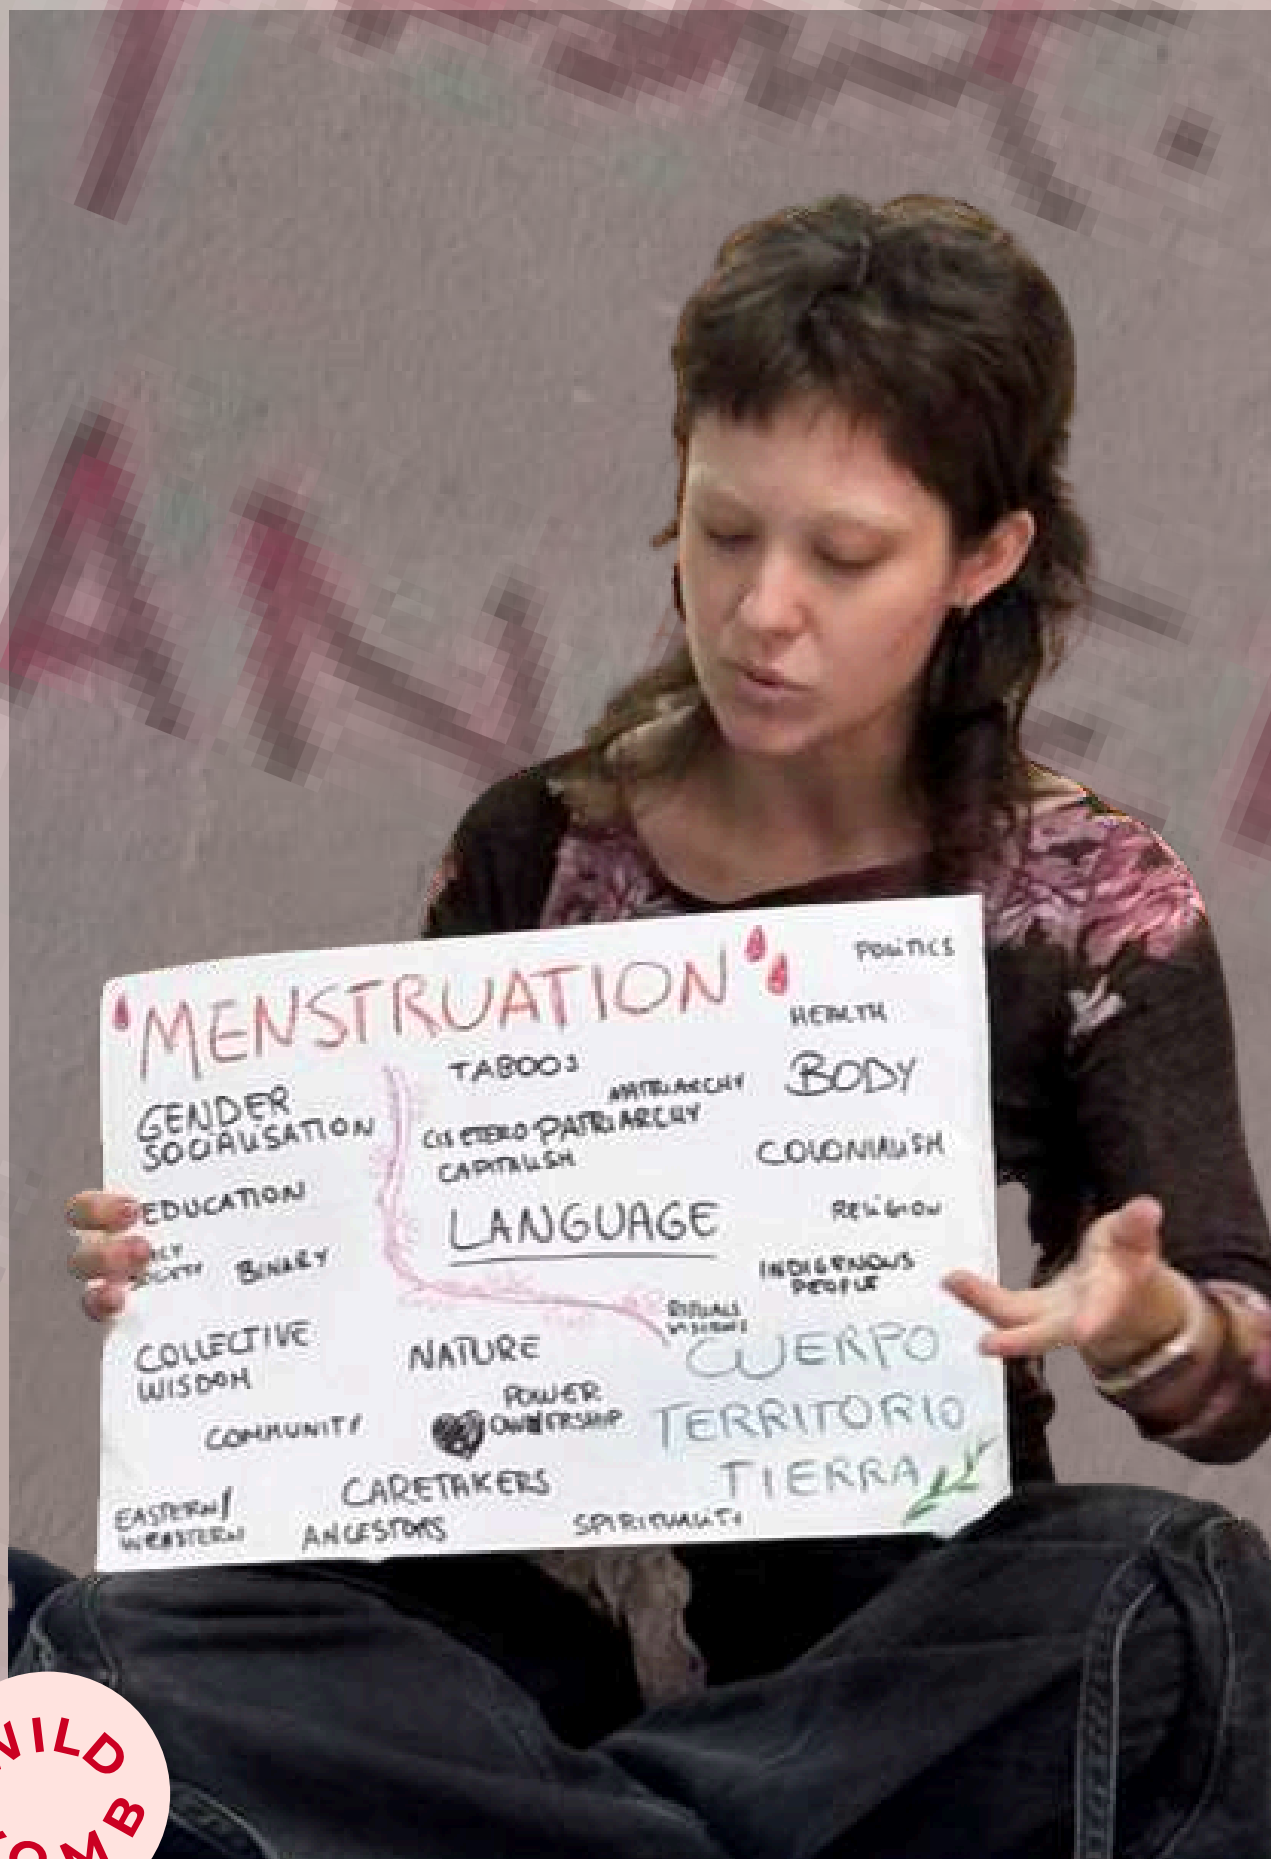 "MENSTRUATION"
POLITICS
HEALTH
TABOOS
BODY
MATRIARCHY
GENDER
SOCIALISATION
CISETERO PATRIARCHY
CAPITALISM
COLONIALISM
EDUCATION
LANGUAGE
RELIGION
BINARY
INDIGENOUS
PEOPLE
RITUALS
COLLECTIVE
WISDOM
NATURE
CUERPO
POWER
OWNERSHIP
TERRITORIO
COMMUNITY
TIERRA
CARETAKERS
EASTERN/
WEASTERN
ANCESTORS
SPIRITUALITY
WILD